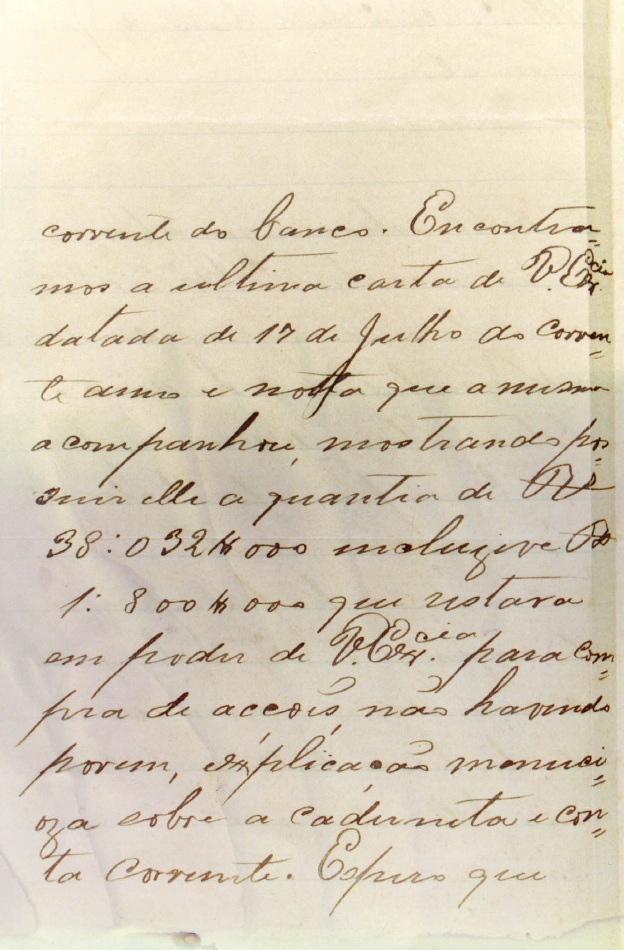 corrente do banco. Encontra=
mos a ultima carta de V. Excia.
datada de 17 de Julho do corren=
te anno e notta que a mesma
acompanhou, mostrando pos=
suir elle a quantia de Rs
38:032$000 incluzive Rs
1:800$000 que estava
em poder de V. Excia. para com=
pra de accoẽs, não havendo
porem, explicacão menuci=
oza sobre a caderneta e con=
ta Corrente. Espero que